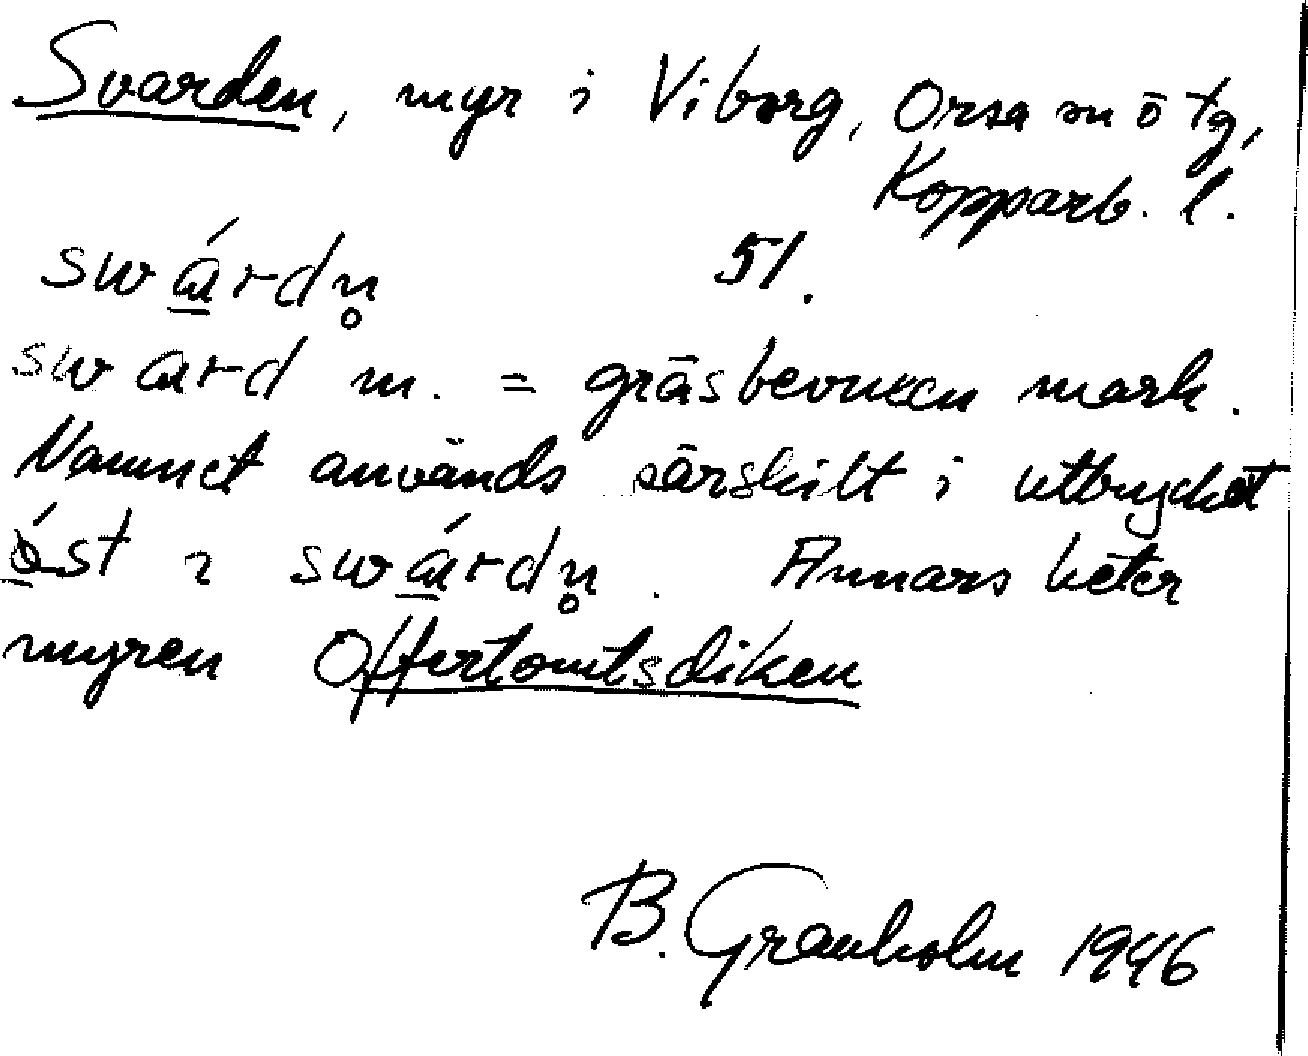 Svarden, myr i Viborg, Orsa sn ö tg,
Kopparb. l.
swárdn̥ 51.
sward m. = gräsbevuxen mark.
Namnet används särskilt i uttrycket
ɒ́st ı swárdn̥. Annars heter
myren Offertomtsdiken
B. Granholm 1946